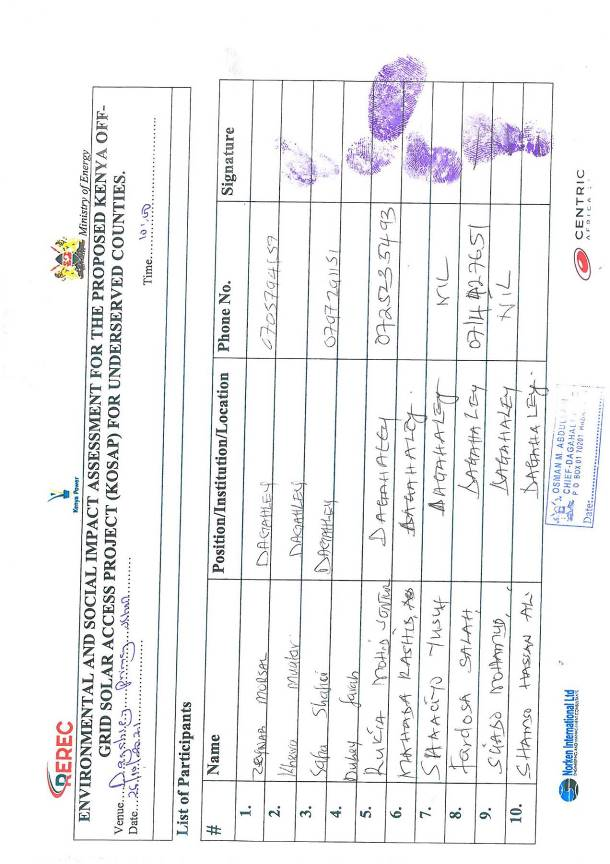 REREC
Kenya Power
Ministry of Energy
ENVIRONMENTAL AND SOCIAL IMPACT ASSESSMENT FOR THE PROPOSED KENYA OFF-
GRID SOLAR ACCESS PROJECT (KOSAP) FOR UNDERSERVED COUNTIES.
Venue...Dagahley Primary School
Date...25/10/2021 Time...10:00
List of Participants
# Name Position/Institution/Location Phone No. Signature
1. ZEYNAB MOUSAL DAGAHLEY 0705794157
2. Muktar DAGAHLEY
3. Safia Shafici DAGAHLEY 0797291151
4. Dubey Farah
5. RUKIA MOHD JONTER DAGAHALEY 0725235493
6. MAHADA RASHID DAGAHALEY.
7. SHAACIYO YUSUF DAGAHALEY NIL
8. Fardosa SALAH DAGAHALEY 0714427651
9. SIYADO MOHAMUD, DAGAHALEY NIL
10. SHAMSO HASSAN ALI DAGAHALEY.
OSMAN M. ABDUL
CHIEF-DAGAHAL
P O BOX 01 70201
Date:
Norken International Ltd
CENTRIC
AFRICA